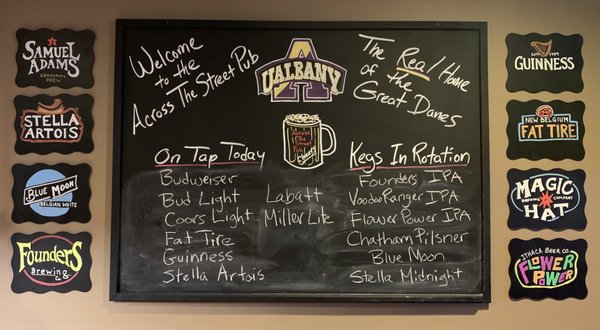 SAMUEL
ADAMS
SEASONAL
BREW
STELLA
ARTOIS
BLUE MOON
BELGIAN WHITE
FOUNDERS
BREWING CO
Welcome
to the
Across The Street Pub
UALBANY
The Real Home
of the
Great Danes
Across
The
Street
Pub
Cheers
On Tap Today
Budweiser
Bud Light
Coors Light
Fat Tire
Guinness
Stella Artois
Labatt
Miller Lite
Kegs In Rotation
Founders IPA
VoodooRanger IPA
Flower Power IPA
Chatham Pilsner
Blue Moon
Stella Midnight
GUINNESS
NEW BELGIUM
FAT TIRE
MAGIC
HAT
ITHACA BEER CO.
FLOWER
POWER